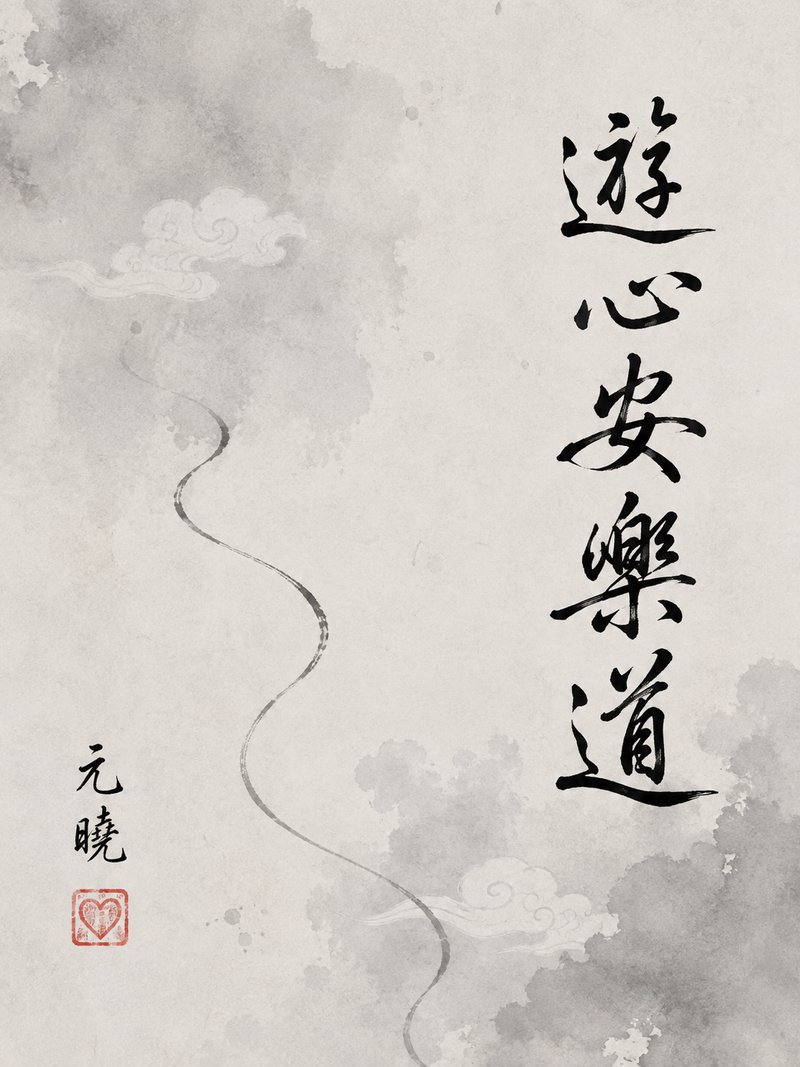 遊心安樂道
元曉